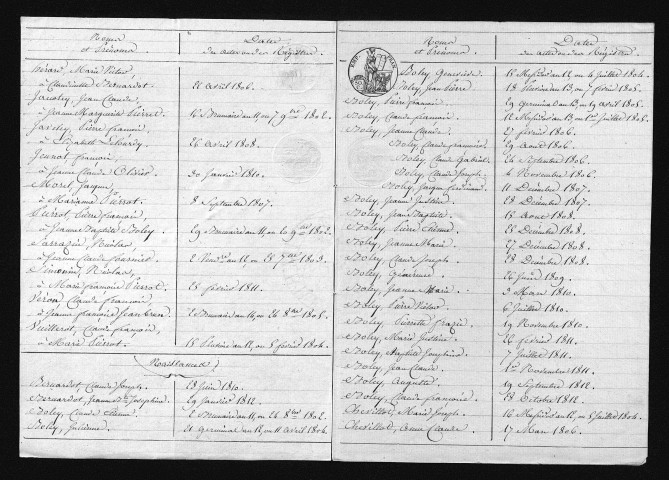 Noms
et Prénoms
Dates
des actes ou des Registres
Bérard, Marie Victor,
à Claudinette Bernardot
22 avril 1806.
Jacotey, Jean Claude,
à Jeanne Marguerite Pierret
16 Brumaire an 11 ou 7 9bre 1802.
Jacotey, Pierre françois,
à Elizabeth
26 avril 1808.
françois,
à Jeanne Claude Olivier
30 Janvier 1810.
Morel, Jacques,
à Marianne Pierrot
8 Septembre 1807.
Pierrot, Pierre françois,
à Jeanne Baptiste Boley
29 Brumaire an 11, ou 9bre 1802.
Sarrazin, Nicolas,
à Jeanne Claude fournier
2 Vend. an 12, ou 25 7bre 1803.
Simonin, Nicolas,
à Marie françoise Pierrot
25 février 1811.
Véron Claude françois,
à Jeanne françoise
2 Brumaire an 14, ou 26 8bre 1805.
Vuillerot, Claude françois,
à Marie Pierrot
15 Pluviose an 12, ou 5 février 1804.
Naissances
Bernardot, Claude Joseph
28 Juin 1810.
Bernardot, Jeanne Josephine
29 Janvier 1812.
Boley, Claude Etienne
2 Brumaire an 11, ou 24 8bre 1802.
Boley, Julienne
21 germinal an 12, ou 11 avril 1804.
Noms
et Prénoms
Dates
des actes ou des Registres
Boley Geneviève
15 Messidor an 12, ou 4 Juillet 1804.
Boley, Jean Pierre
18 Pluviose an 13, ou 7 février 1805.
Boley, Pierre françois
29 germinal an 13, ou 19 avril 1805.
Boley, Claude françois
12 Messidor an 13, ou 1er Juillet 1805.
Boley, Jeanne Claude
27 février 1806.
Boley, Claude françoise
29 août 1806.
Boley, Claude Gabriel
24 Septembre 1806.
Boley, Claude Joseph
4 Novembre 1806.
Boley, Jacques
11 Décembre 1807.
Boley, Jeanne Justine
28 Décembre 1807.
Boley, Jean Baptiste
15 août 1808.
Boley, Pierre Etienne
22 Décembre 1808.
Boley, Jeanne Marie
27 Décembre 1808.
Boley, Claude Joseph
28 Décembre 1808.
Boley, Etiennne
26 Juin 1809.
Boley, Jeanne Marie
3 Mars 1810.
Boley, Pierre Victor
6 Juillet 1810.
Boley, Pierrette
19 Novembre 1810.
Boley, Marie Justine
12 février 1811.
Boley, Josephine
7 Juillet 1811.
Boley, Jean Claude
1er Novembre 1811.
Boley, Auguste
19 Septembre 1812.
Boley, Claude françoise
18 Octobre 1812.
Chevillot, Marie Joseph
16 Messidor an 12, ou 5 Juillet 1804.
Chevillot, Anne Claude
17 Mars 1806.